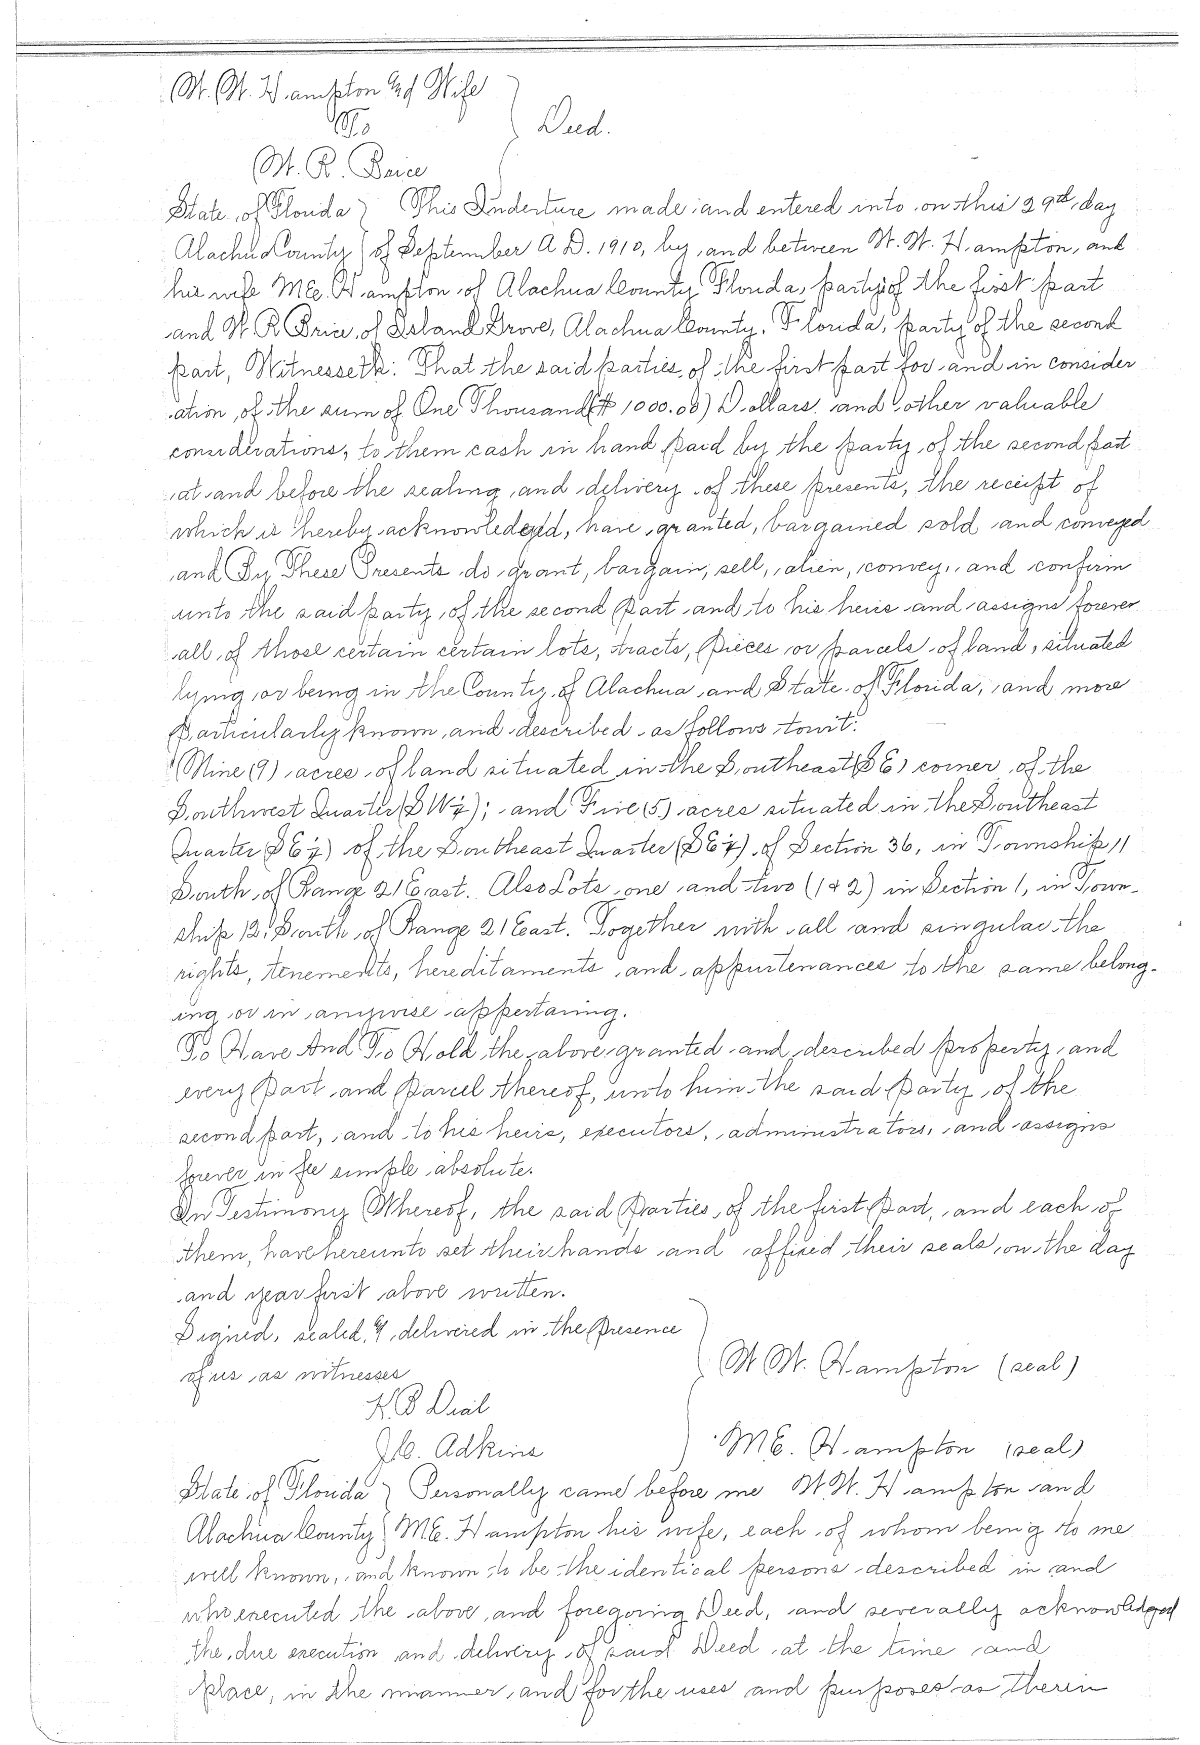 W. W. Hampton and Wife
To
Deed.
W. R. Brice
State of Florida } This Indenture made and entered into on this 29th, day
Alachua County } of September A. D. 1910, by and between W. W. Hampton, and
his wife M.E. Hampton of Alachua County Florida, party of the first part
and W. R. Brice of Island Grove, Alachua County, Florida, party of the second
part, Witnesseth: That the said parties of the first part for and in consider
ation of the sum of One Thousand ($ 1000.00) Dollars and other valuable
considerations, to them cash in hand paid by the party of the second part
at and before the sealing and delivery of these presents, the receipt of
which is hereby acknowledged, have granted, bargained sold and conveyed
and By These Presents do grant, bargain, sell, alien, convey, and confirm
unto the said party of the second part and to his heirs and assigns forever
all of those certain certain lots, tracts, pieces or parcels of land, situated
lying or being in the County of Alachua and State of Florida, and more
particularly known and described as follows towit:
Nine (9) acres of land situated in the Southeast (SE) corner of the
Southwest Quarter (SW¼); and Five (5) acres situated in the Southeast
Quarter (SE¼) of the Southeast Quarter (SE¼) of Section 36, in Township 11
South of Range 21 East. Also Lots one and two (1 & 2) in Section 1, in Town-
ship 12 South of Range 21 East. Together with all and singular the
rights, tenements, hereditaments and appurtenances to the same belong-
ing or in anywise appertaining.
To Have And To Hold the above granted and described property and
every part and parcel thereof, unto him the said party of the
second part, and to his heirs, executors, administrators, and assigns
forever in fee simple absolute.
In Testimony Whereof, the said parties of the first part, and each of
them, have hereunto set their hands and affixed their seals on the day
and year first above written.
Signed, sealed, & delivered in the presence
of us as witnesses
W W. Hampton (seal)
H. B Dial
J.C. Adkins
M E. Hampton (seal)
State of Florida } Personally came before me W. W. Hampton and
Alachua County } M.E. Hampton his wife, each of whom being to me
well known, and known to be the identical persons described in and
who executed the above and foregoing Deed, and severally acknowledged
the due execution and delivery of said Deed at the time and
place, in the manner and for the uses and purposes as therein